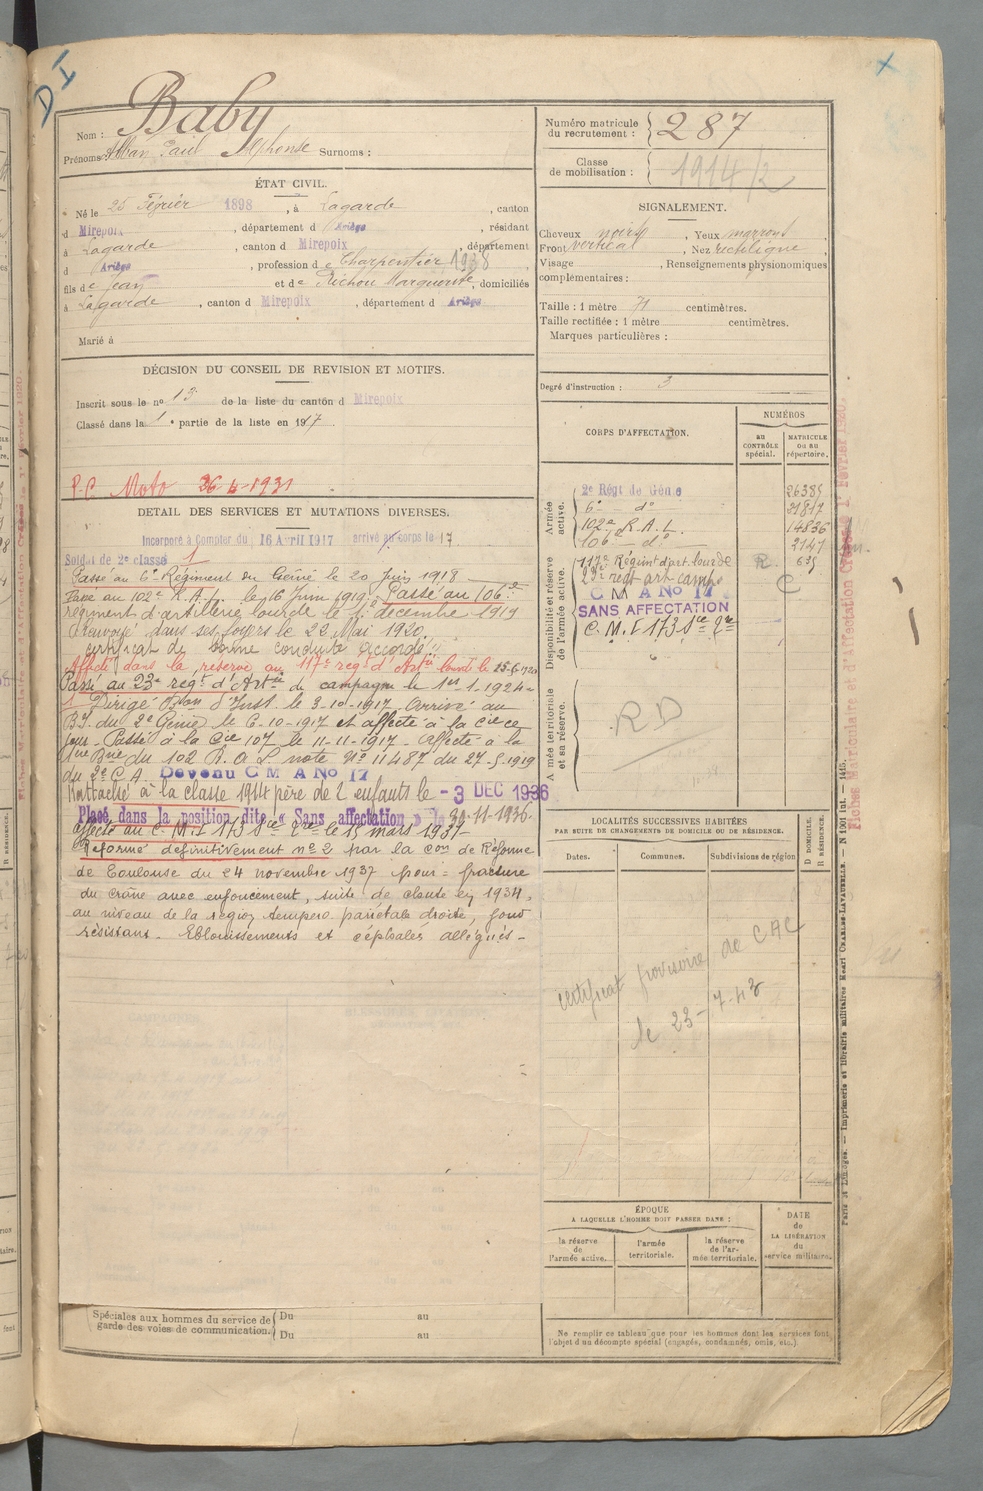 D I
Nom : Baby
Prénoms : Alban Paul Alphonse Surnoms :
Numéro matricule du recrutement : 287
Classe de mobilisation : 1914/2
ÉTAT CIVIL.
Né le 25 Février 1898, à Lagarde, canton
d Mirepoix, département d Ariège, résidant
à Lagarde, canton d Mirepoix, département
d Ariège, profession de Charpentier 1938
fils de Jean et de Richou Marguerite, domiciliés
à Lagarde, canton d Mirepoix, département d Ariège
Marié à
SIGNALEMENT.
Cheveux noirs, Yeux marrons
Front vertical, Nez rectiligne
Visage , Renseignements physionomiques
complémentaires :
Taille : 1 mètre 71 centimètres.
Taille rectifiée : 1 mètre centimètres.
Marques particulières :
Degré d'instruction : 3
DÉCISION DU CONSEIL DE REVISION ET MOTIFS.
Inscrit sous le no 13 de la liste du canton d Mirepoix
Classé dans la 1e partie de la liste en 1917.
P.C. Moto 26-4-1931
DETAIL DES SERVICES ET MUTATIONS DIVERSES.
Incorporé à compter du 16 Avril 1917 arrivé au corps le 17
Soldat de 2e classe
Passé au 6e Régiment du Génie le 20 Juin 1918
Passé au 102e R.A.L. le 16 Juin 1919. Passé au 106e
régiment d'artillerie lourde le 1er décembre 1919
Renvoyé dans ses foyers le 22 Mai 1920.
certificat de bonne conduite accordé.
Affecté dans la réserve au 117e regt d'Artie lourde le 15-6-1920
Passé au 23e regt d'Artie de campagne le 1er-1-1924
Dirigé Bon d'Inst. le 3-10-1917 Arrivé au
B.I. du 2e Génie le 6-10-1917 et affecté à la Cie ce
jour. Passé à la Cie 107 le 11-11-1917. Affecté à la
Bie du 102 R.A.L. note No 11487 du 27-5-1919
du 2e C.A. Devenu C M A No 17
Rattaché à la classe 1914 père de 2 enfants le - 3 DEC 1936
Placé dans la position dite « Sans affectation » le 30-11-1936
affecté au C.M.I 173 le 15 mars 1937
Réformé définitivement no 2 par la Con de Réforme
de Toulouse du 24 novembre 1937 pour : fracture
du crâne avec enfoncement, suite de chute en 1934,
au niveau de la région temporo pariétale droite, fond
résistant. Eblouissements et céphalées allégués -
CORPS D'AFFECTATION.
NUMÉROS
au CONTRÔLE spécial.
MATRICULE ou au répertoire.
Armée active.
2e Régt de Génie 26385
6e do 21817
102e R.A.L. 14836
106e do 2147
Disponibilité et réserve de l'armée active.
117e Régiment d'art. lourde R 635
23e regt art camp C
C M A No 17
SANS AFFECTATION
C.M.I 173
Armée territoriale et sa réserve.
RD
LOCALITÉS SUCCESSIVES HABITÉES
PAR SUITE DE CHANGEMENTS DE DOMICILE OU DE RÉSIDENCE.
Dates. Communes. Subdivisions de région D DOMICILE. R RÉSIDENCE.
certificat provisoire de CAC
le 23-7-43
ÉPOQUE
A LAQUELLE L'HOMME DOIT PASSER DANS :
la réserve de l'armée active.
l'armée territoriale.
la réserve de l'armée territoriale.
DATE de LA LIBÉRATION du service militaire.
Ne remplir ce tableau que pour les hommes dont les services font
l'objet d'un décompte spécial (engagés, condamnés, omis, etc.).
Spéciales aux hommes du service de
garde des voies de communication.
Du au
Du au
Paris et Limoges. — Imprimerie et librairie militaires Henri CHARLES-LAVAUZELLE. — N 1301 int. — 1415.
Fiches Matriculaire et d'Affectation Créées le 1er Février 1920.